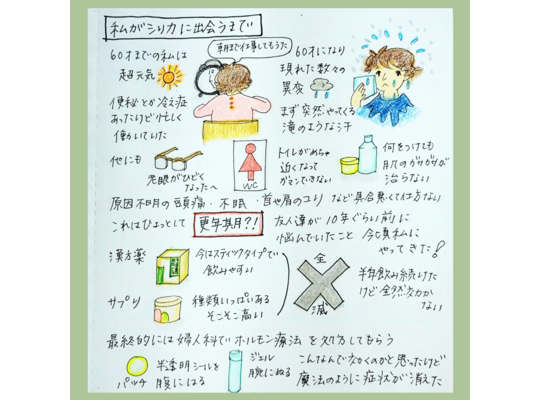 私がシリカに出会うまで
60才までの私は
超元気
便秘とか冷え症
あったけど忙しく
働いていた
朝まで仕事してもうた
60才になり
現れた数々の
異変
まず突然やってくる
滝のような汗
他にも
老眼がひどく
なったへ
WC
トイレがめちゃ
近くなって
ガマンできない
何をつけても
肌のガサガサが
治らない
原因不明の頭痛・不眠・首や肩のコリ など具合悪くて仕方ない
これはひょっとして
更年期?!
友人達が10年ぐらい前に
悩んでいたこと 今頃私に
やってきた!
漢方薬
今はスティックタイプで
飲みやすい
サプリ
種類いっぱいある
そこそこ高い
全
滅
半年飲み続けた
けど全然効か
ない
最終的には婦人科でホルモン療法を処方してもらう
パッチ
半透明シールを
腹にはる
ジェル
腕にぬる
こんなんで効くのかと思ったけど
魔法のように症状が消えた